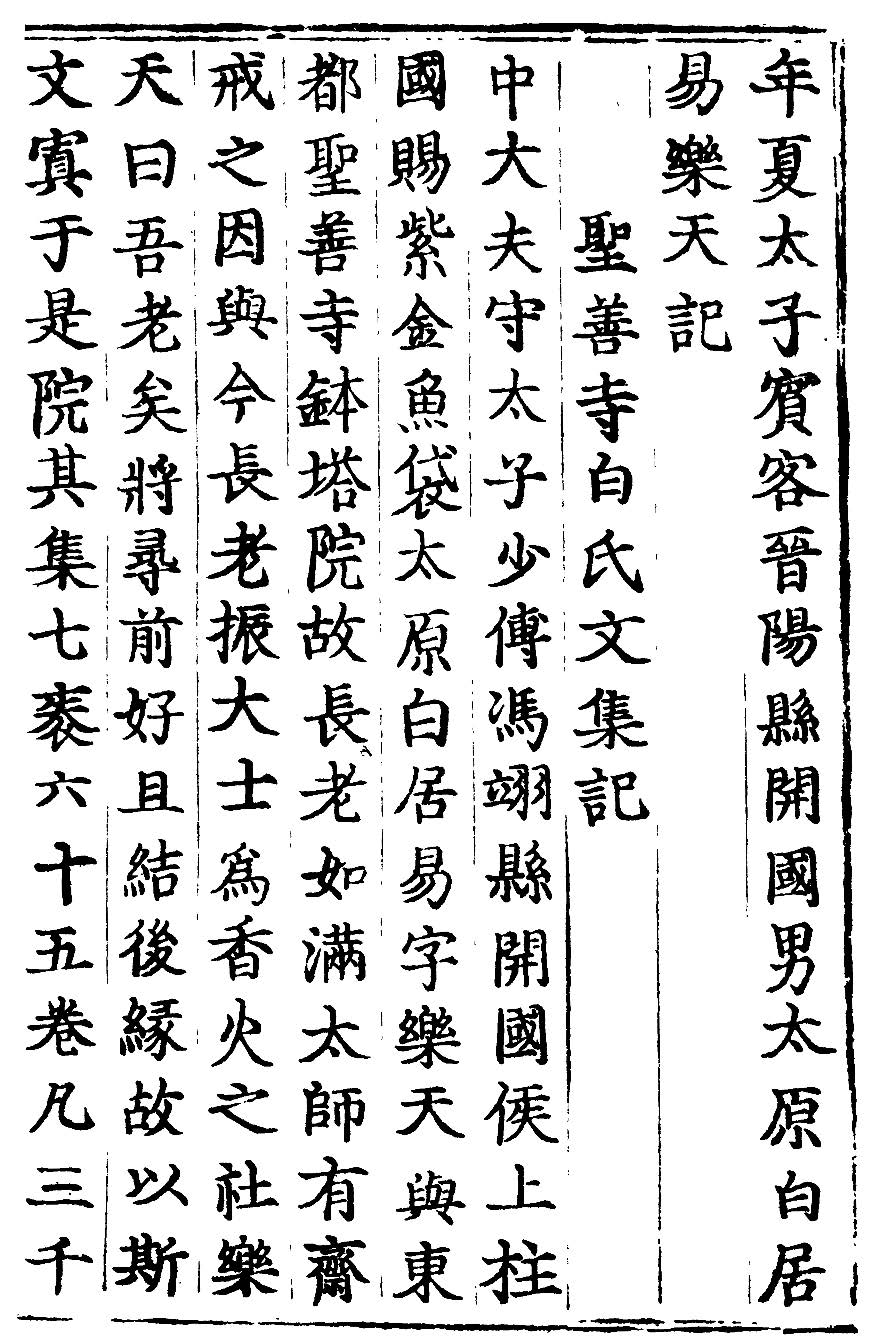 年夏太子賓客晉陽縣開國男太原白居
易樂天記
聖善寺白氏文集記
中大夫守太子少傅馮翊縣開國侯上柱
國賜紫金魚袋太原白居易字樂天與東
都聖善寺鉢塔院故長老如滿太師有齋
戒之因與今長老振大士爲香火之社樂
天曰吾老矣將尋前好且結後緣故以斯
文寘于是院其集七袠六十五卷凡三千